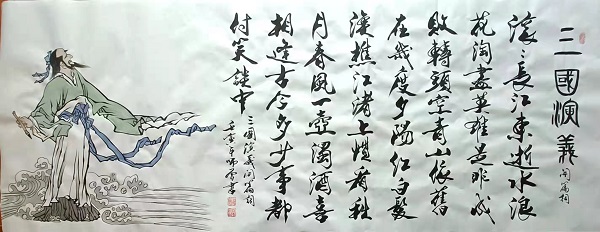 三國演義
開篇詞
滾〻長江東逝水浪
花淘盡英雄是非成
敗轉頭空青山依舊
在幾度夕陽紅白髮
漁樵江渚上慣看秋
月春風一壺濁酒喜
相逢古今多少事都
付笑談中
三國演義開篇詞
書